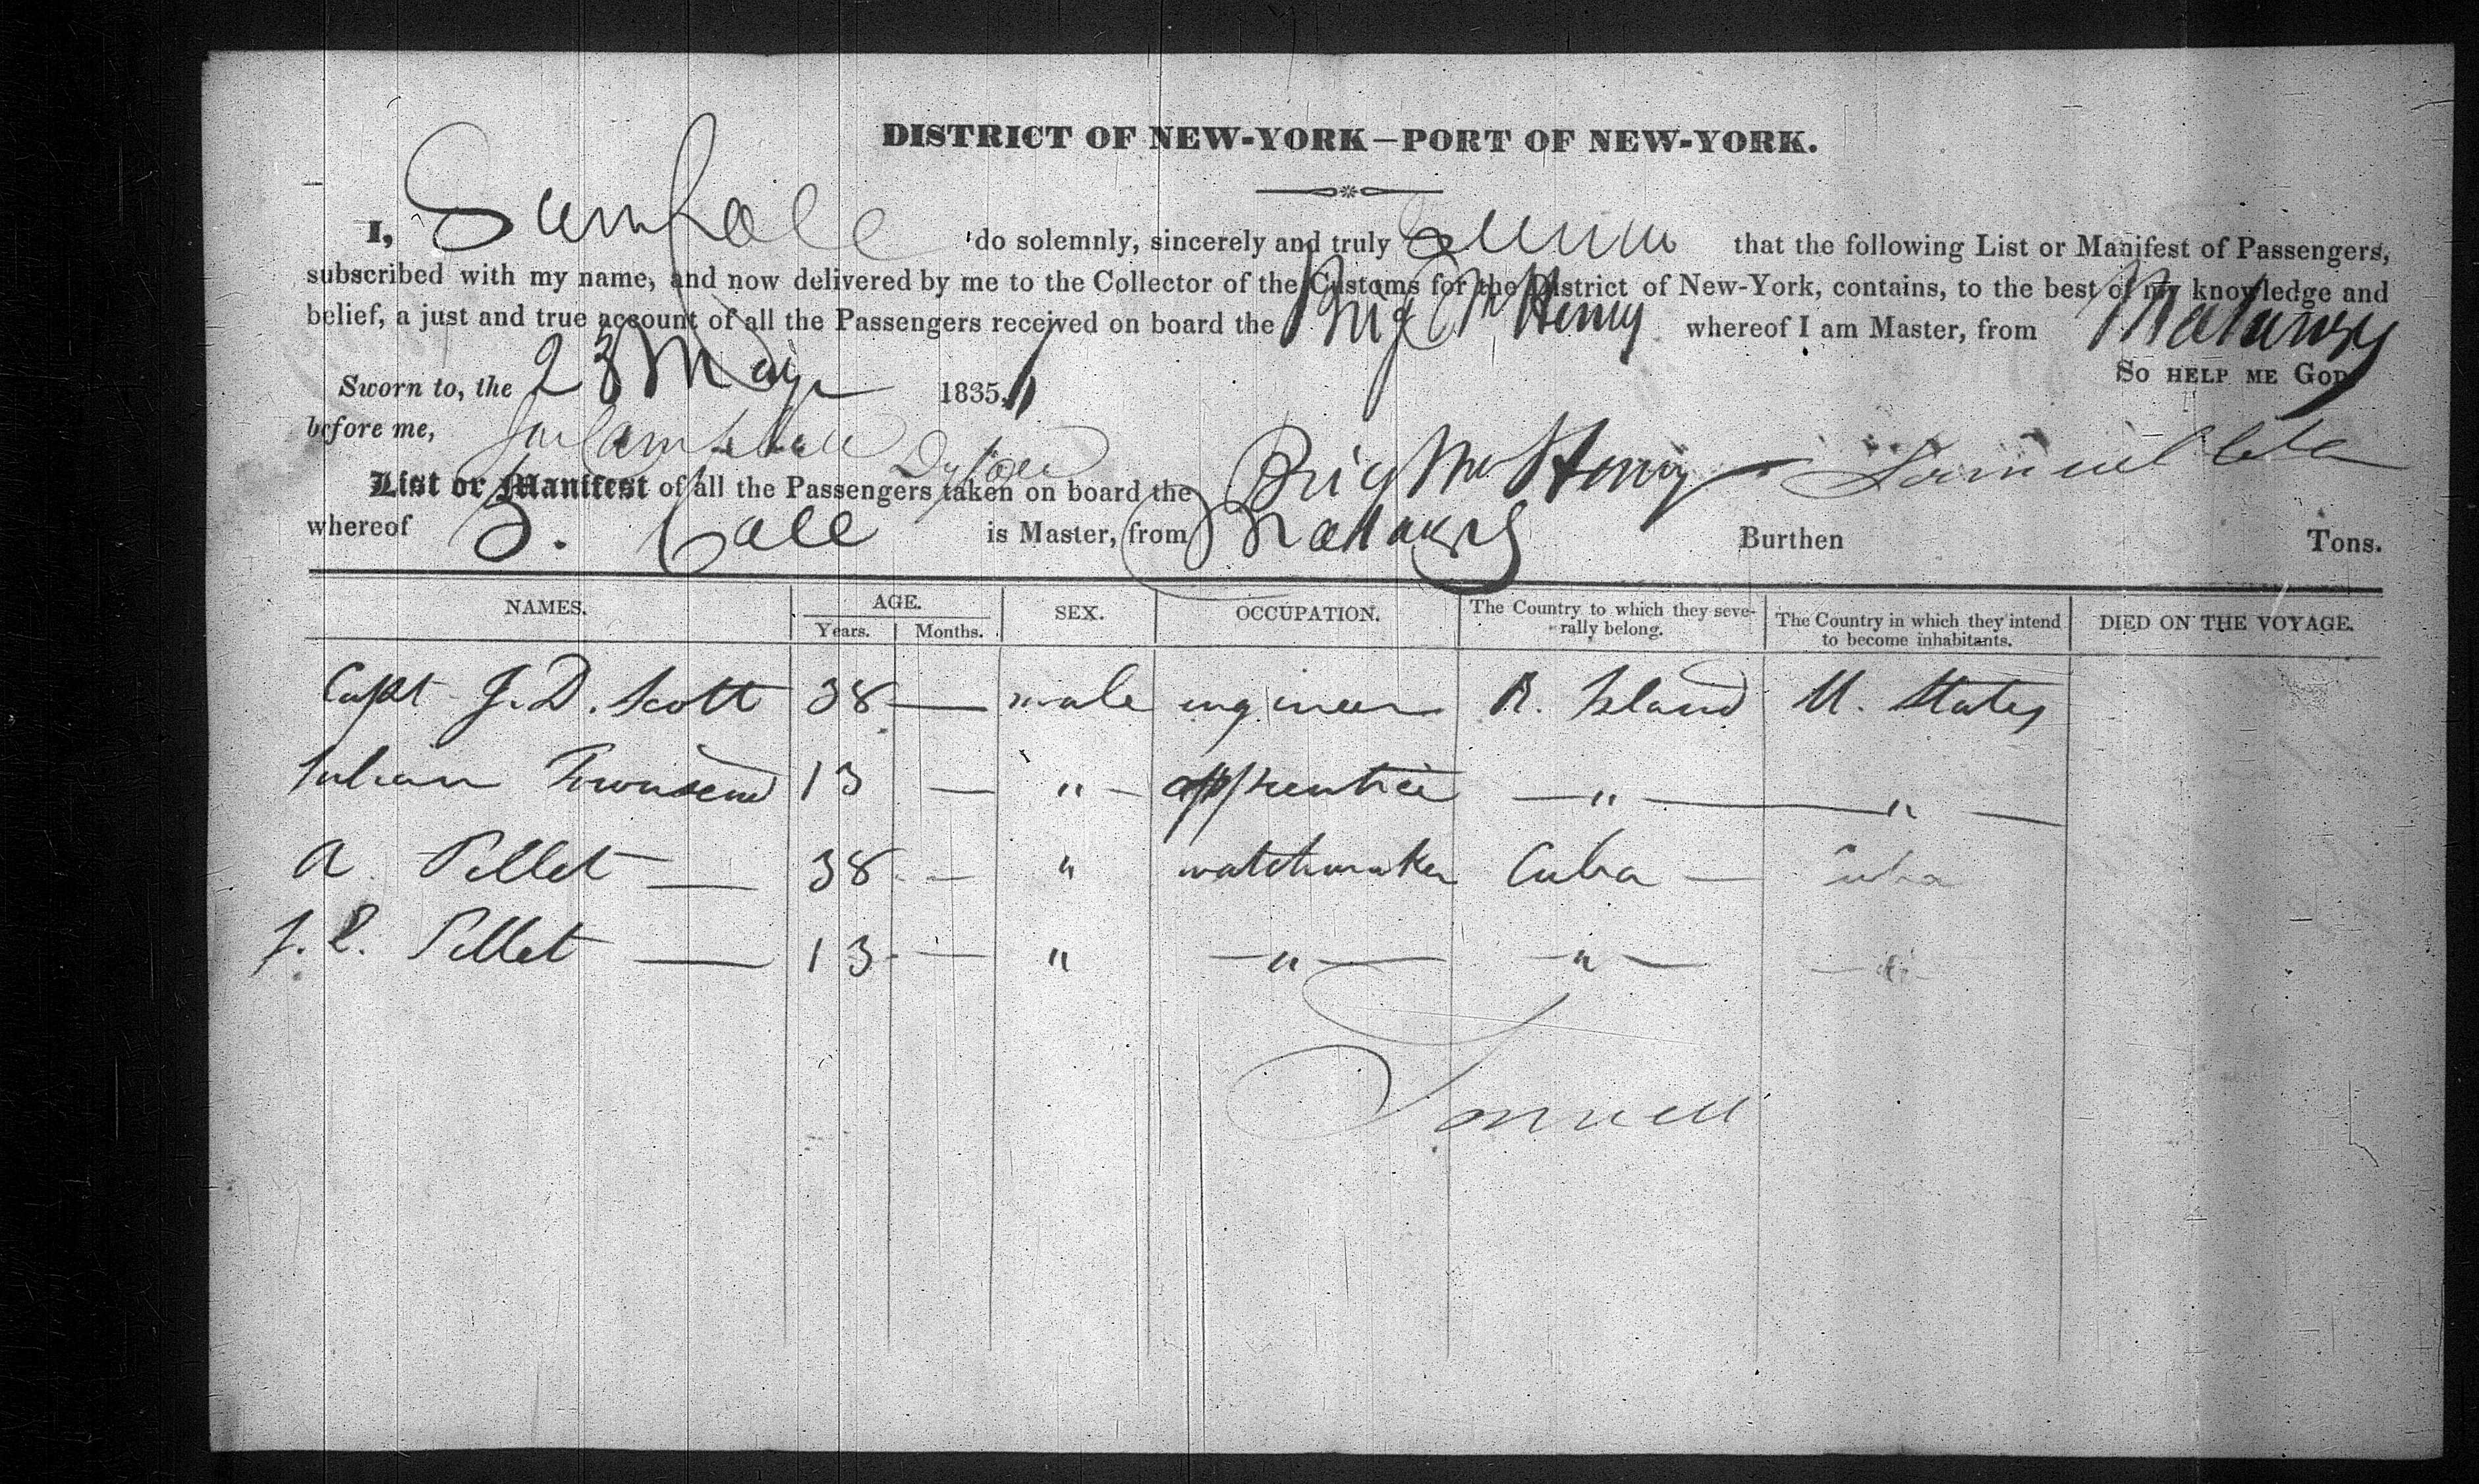 DISTRICT OF NEW-YORK—PORT OF NEW-YORK.
I, do solemnly, sincerely and truly that the following List or Manifest of Passengers,
subscribed with my name, and now delivered by me to the Collector of the Customs for the District of New-York, contains, to the best of my knowledge and
belief, a just and true account of all the Passengers received on board the Brig Mc Henry whereof I am Master, from Matanzas
Sworn to, the 23 May 1835. So HELP ME GOD.
before me,
List or Manifest of all the Passengers taken on board the Brig Mc Henry Samuel
whereof S. is Master, from Matanzas Burthen Tons.
NAMES. AGE. SEX. OCCUPATION. The Country to which they seve-rally belong. The Country in which they intend to become inhabitants. DIED ON THE VOYAGE.
Years. Months.
Capt J. D. Scott 38 — male engineer R. Island U. States
Julian Townsend 13 — " — apprentice — " — " —
A Pellet — 38 — " watchmaker Cuba — Cuba
J. L. Pellet — 13 — " — " — — " — — " —